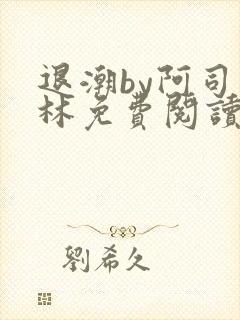 退潮by阿司
林免費閱讀
劉希久